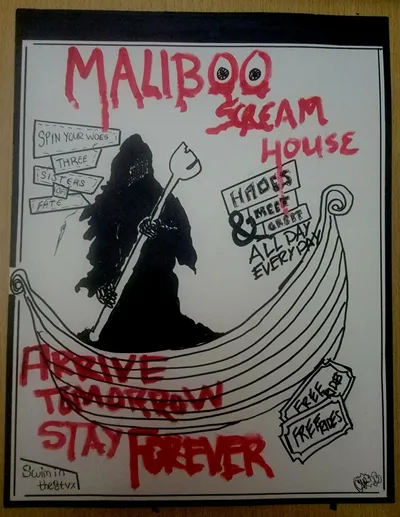 MALIBOO
SCREAM
HOUSE
SPIN YOUR WOES
THREE
SISTERS
OF
FATE
HADES
MEET
&
GREET
ALL DAY
EVERYDAY
ARRIVE
TOMORROW
STAY FOREVER
FREE
FREE RIDES
Swim in